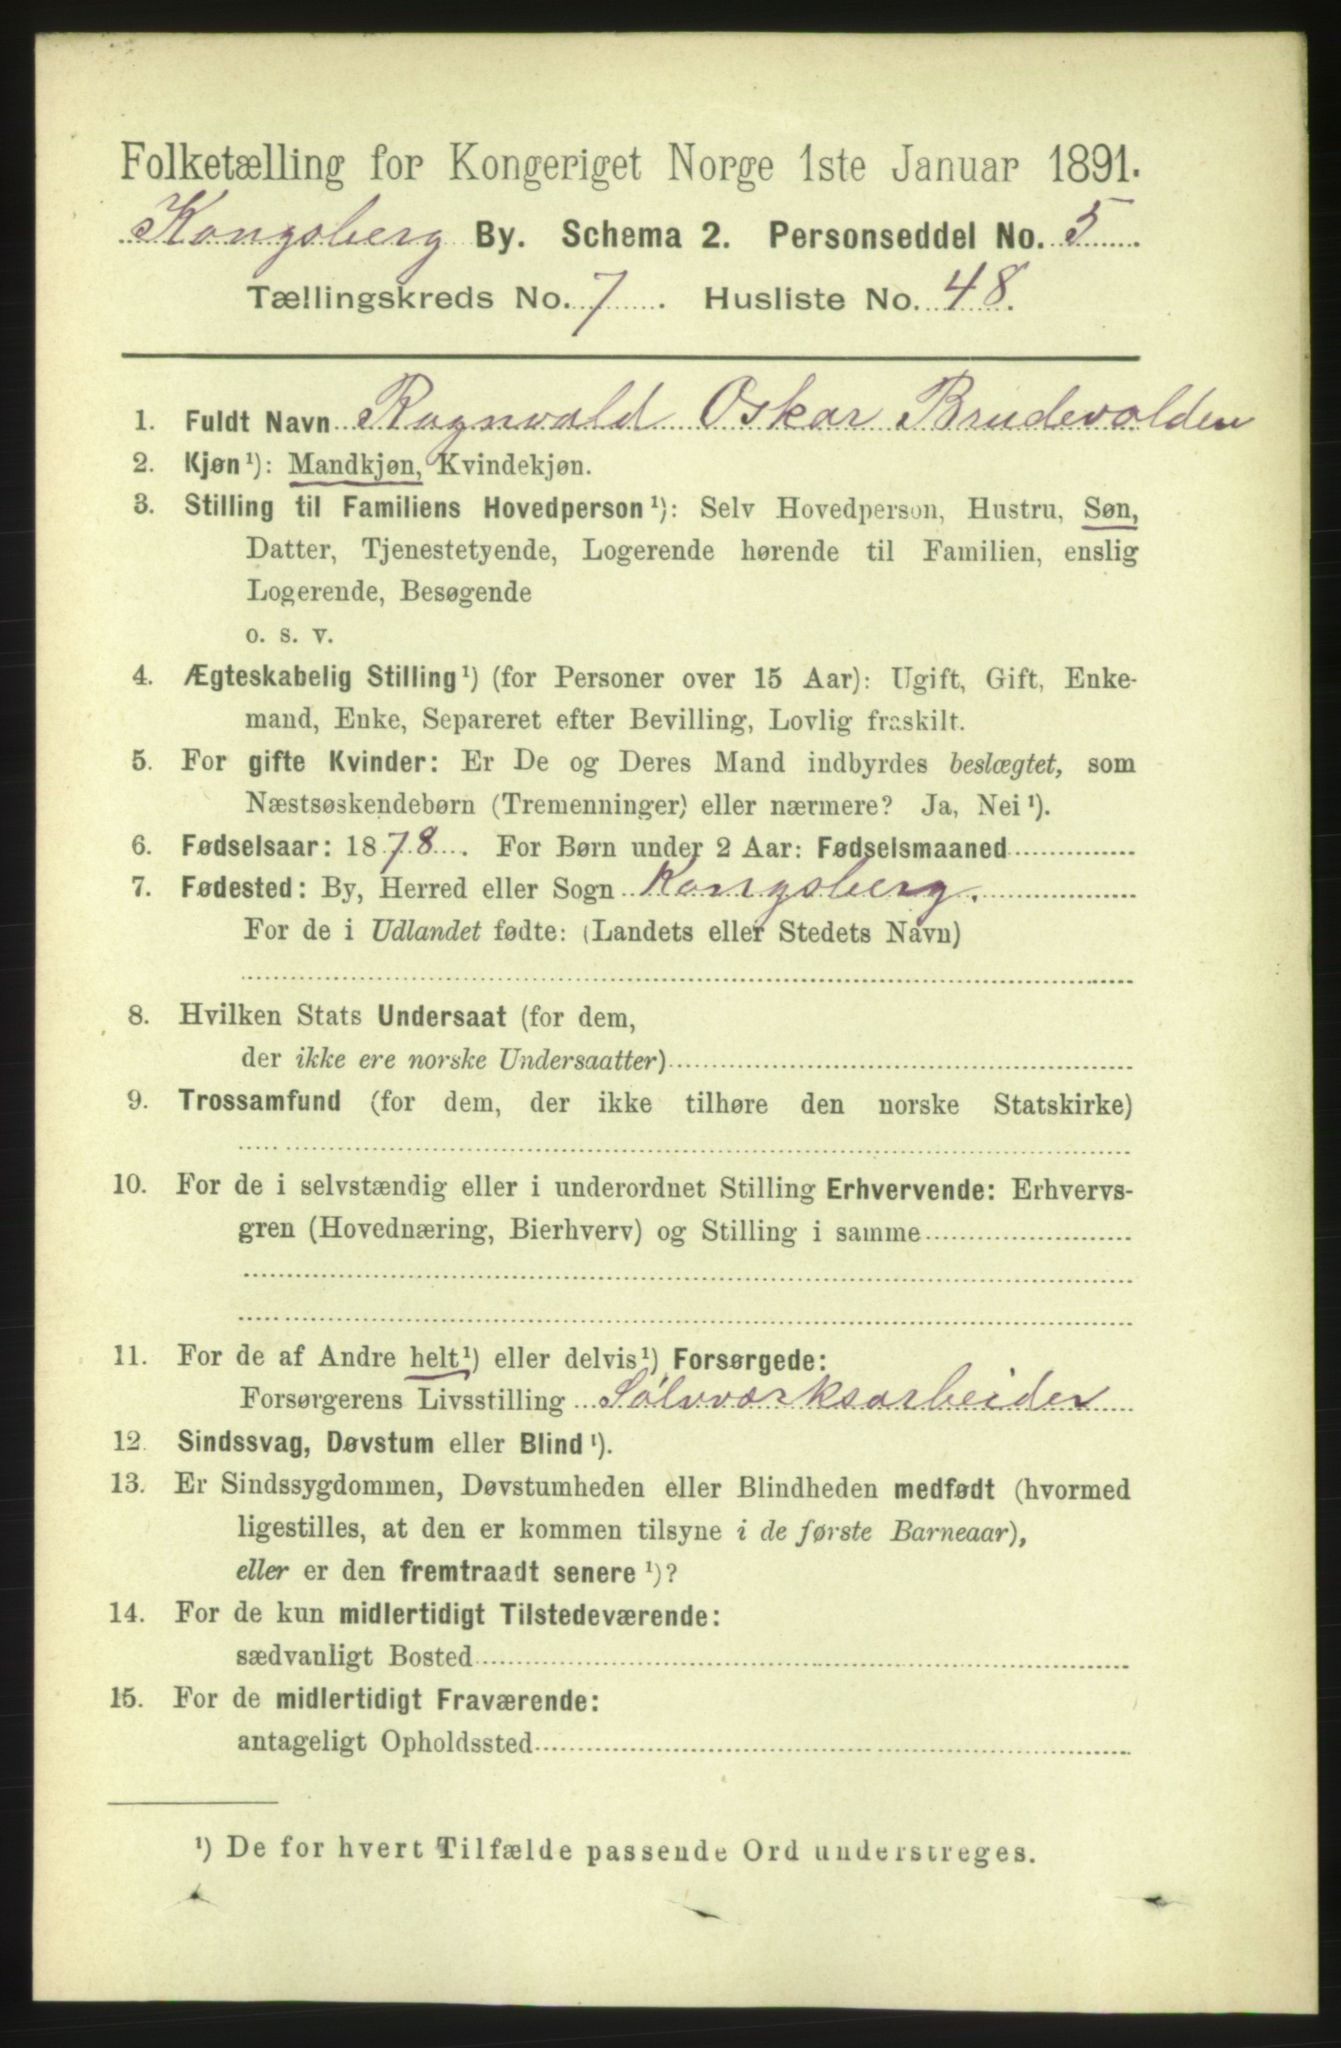 Folketælling for Kongeriget Norge 1ste Januar 1891.
Kongsberg By. Schema 2. Personseddel No. 5
Tællingskreds No. 7. Husliste No. 48.
1. Fuldt Navn Ragnvald Oskar Brudevolden
2. Kjøn¹): Mandkjøn, Kvindekjøn.
3. Stilling til Familiens Hovedperson¹): Selv Hovedperson, Hustru, Søn,
Datter, Tjenestetyende, Logerende hørende til Familien, enslig
Logerende, Besøgende
o. s. v.
4. Ægteskabelig Stilling¹) (for Personer over 15 Aar): Ugift, Gift, Enke-
mand, Enke, Separeret efter Bevilling, Lovlig fraskilt.
5. For gifte Kvinder: Er De og Deres Mand indbyrdes beslægtet, som
Næstsøskendebørn (Tremenninger) eller nærmere? Ja, Nei¹).
6. Fødselsaar: 1878. For Børn under 2 Aar: Fødselsmaaned
7. Fødested: By, Herred eller Sogn Kongsberg.
For de i Udlandet fødte: (Landets eller Stedets Navn)
8. Hvilken Stats Undersaat (for dem,
der ikke ere norske Undersaatter)
9. Trossamfund (for dem, der ikke tilhøre den norske Statskirke)
10. For de i selvstændig eller i underordnet Stilling Erhvervende: Erhvervs-
gren (Hovednæring, Bierhverv) og Stilling i samme
11. For de af Andre helt¹) eller delvis¹) Forsørgede:
Forsørgerens Livsstilling Sølvværksarbeider
12. Sindssvag, Døvstum eller Blind¹).
13. Er Sindssygdommen, Døvstumheden eller Blindheden medfødt (hvormed
ligestilles, at den er kommen tilsyne i de første Barneaar),
eller er den fremtraadt senere¹)?
14. For de kun midlertidigt Tilstedeværende:
sædvanligt Bosted
15. For de midlertidigt Fraværende:
antageligt Opholdssted
¹) De for hvert Tilfælde passende Ord understreges.